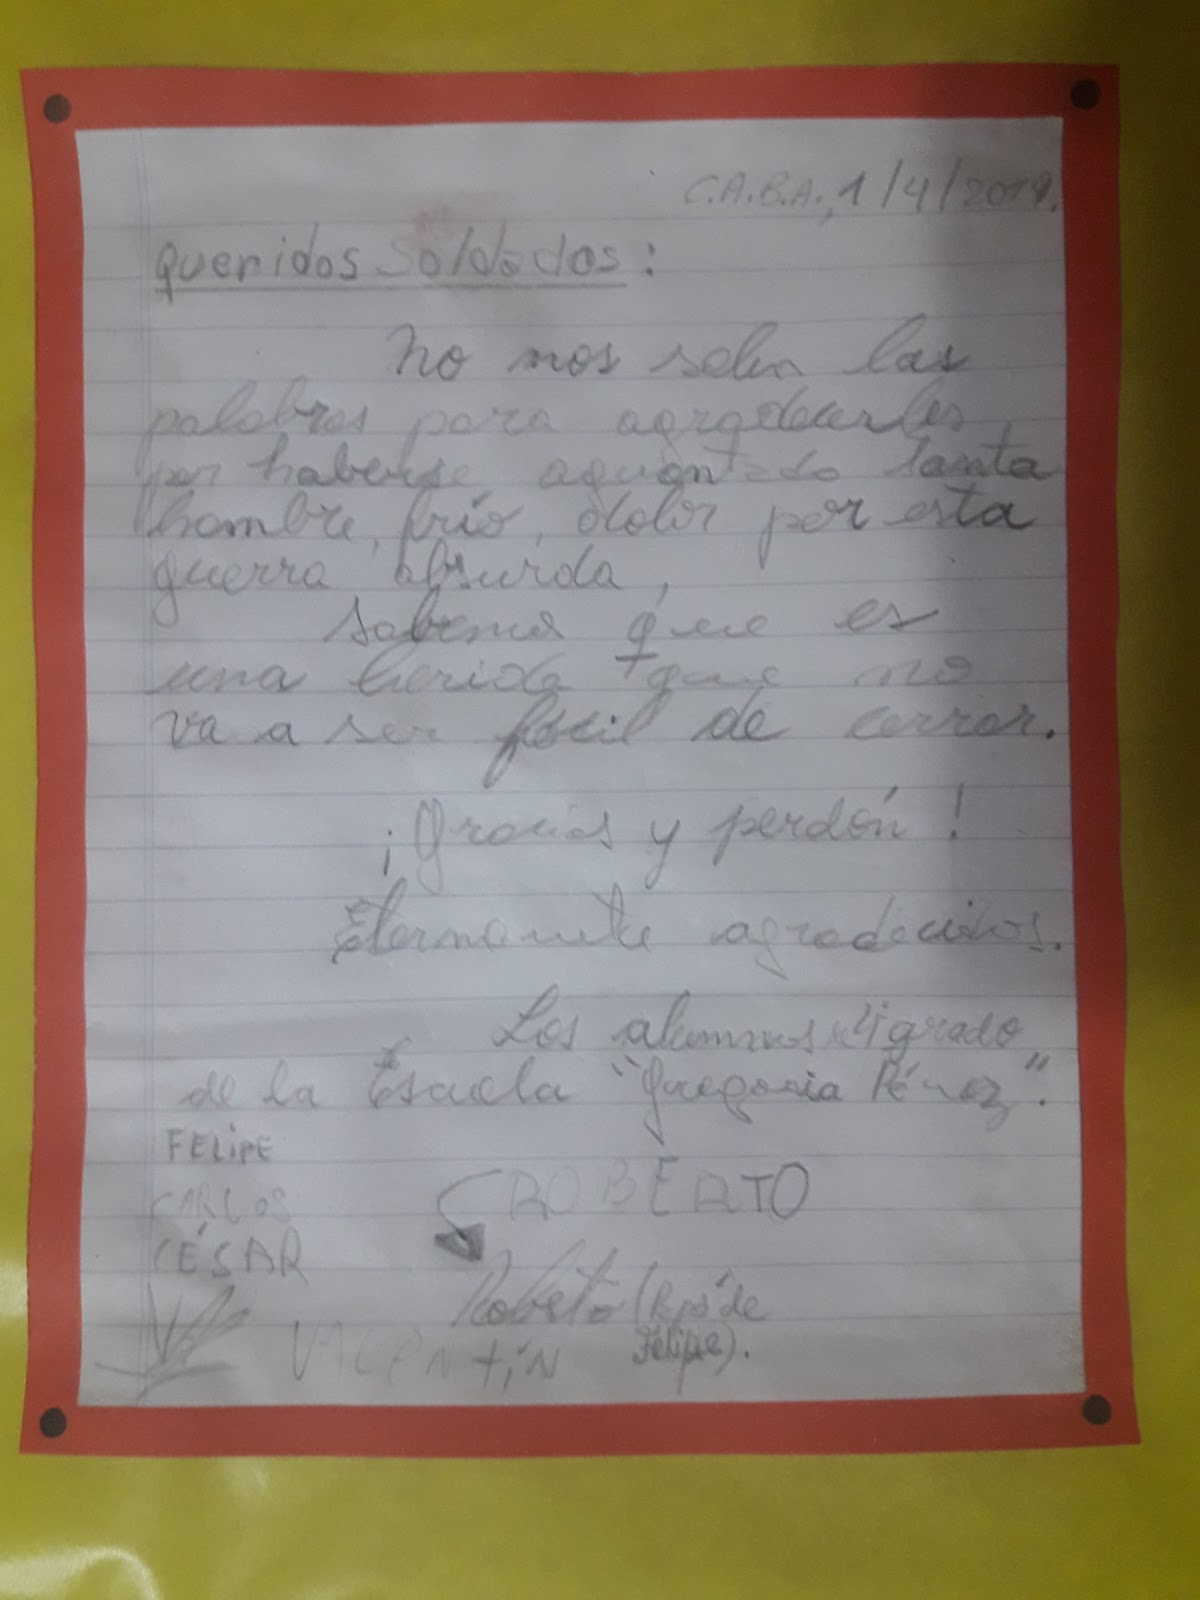 C.A.B.A., 1/4/2019.
queridos Soldados:
No nos salen las
palabras para agradecerles
por haberse aguantado tanta
hambre, frío, dolor por esta
guerra absurda,
Sabemos que es
una herida que no
va a ser fácil de cerrar.
¡Gracias y perdón!
Eternamente agradecidos.
Los alumnos grado
de la Escuela "Gregoria Pérez".
FELIPE
CARLOS
ROBERTO
CÉSAR
Roberto (Papá de
Felipe).
VALENTÍN